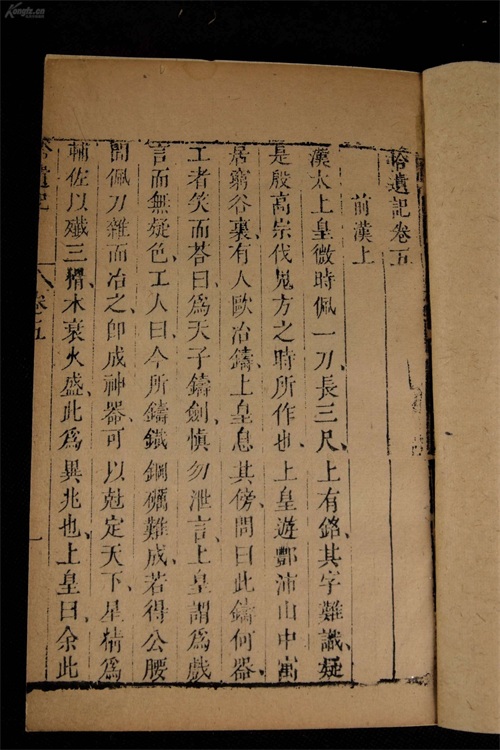 拾遺記卷五
前漢上
漢太上皇微時佩一刀、長三尺、上有銘、其字難識、疑
是殷高宗伐鬼方之時所作也、上皇遊酆沛山中、寓
居窮谷裏、有人歐冶鑄、上皇息其傍、問曰此鑄何器、
工者笑而荅曰、爲天子鑄劍、慎勿泄言、上皇謂爲戲
言而無疑色、工人曰、今所鑄鐵鋼礪難成、若得公腰
間佩刀雜而冶之、卽成神器、可以尅定天下、星精爲
輔佐以殲三猾、木衰火盛、此爲異兆也、上皇曰、余此
拾遺記 卷五 一
Kongfz.cn